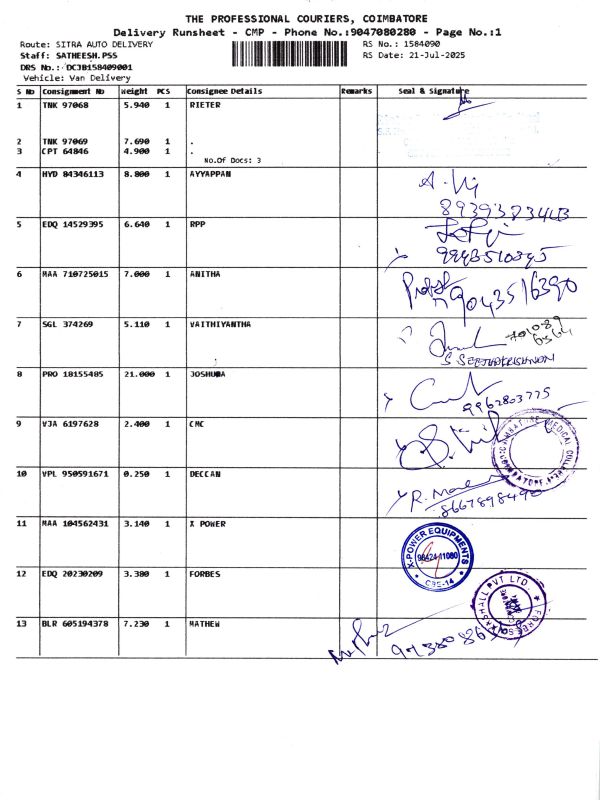 THE PROFESSIONAL COURIERS, COIMBATORE
Delivery Runsheet - CMP - Phone No.:9047080280 - Page No.:1
Route: SITRA AUTO DELIVERY
RS No.: 1584090
Staff: SATHEESH.PSS
RS Date: 21-Jul-2025
DRS No.: DCJB158409001
Vehicle: Van Delivery
S No Consignment No Weight PCS Consignee Details Remarks Seal & Signature
1 TNK 97068 5.940 1 RIETER
2 TNK 97069 7.690 1 .
3 CPT 64846 4.900 1 .
No.Of Docs: 3
4 HYD 84346113 8.800 1 AYYAPPAN
5 EDQ 14529395 6.640 1 RPP
9943510395
6 MAA 710725015 7.000 1 ANITHA
9043516390
7 SGL 374269 5.110 1 VAITHIYANTHA
S SEETHARKRISHNAN
8 PRO 18155485 21.000 1 JOSHUDA
9962803775
9 VJA 6197628 2.400 1 CMC
COIMBATORE MEDICAL COLLEGE
10 VPL 950591671 0.250 1 DECCAN
8667898490
11 MAA 104562431 3.140 1 X POWER
X-POWER EQUIPMENTS
98424 11080
CBE-14
12 EDQ 20230209 3.380 1 FORBES
13 BLR 605194378 7.230 1 MATHEW